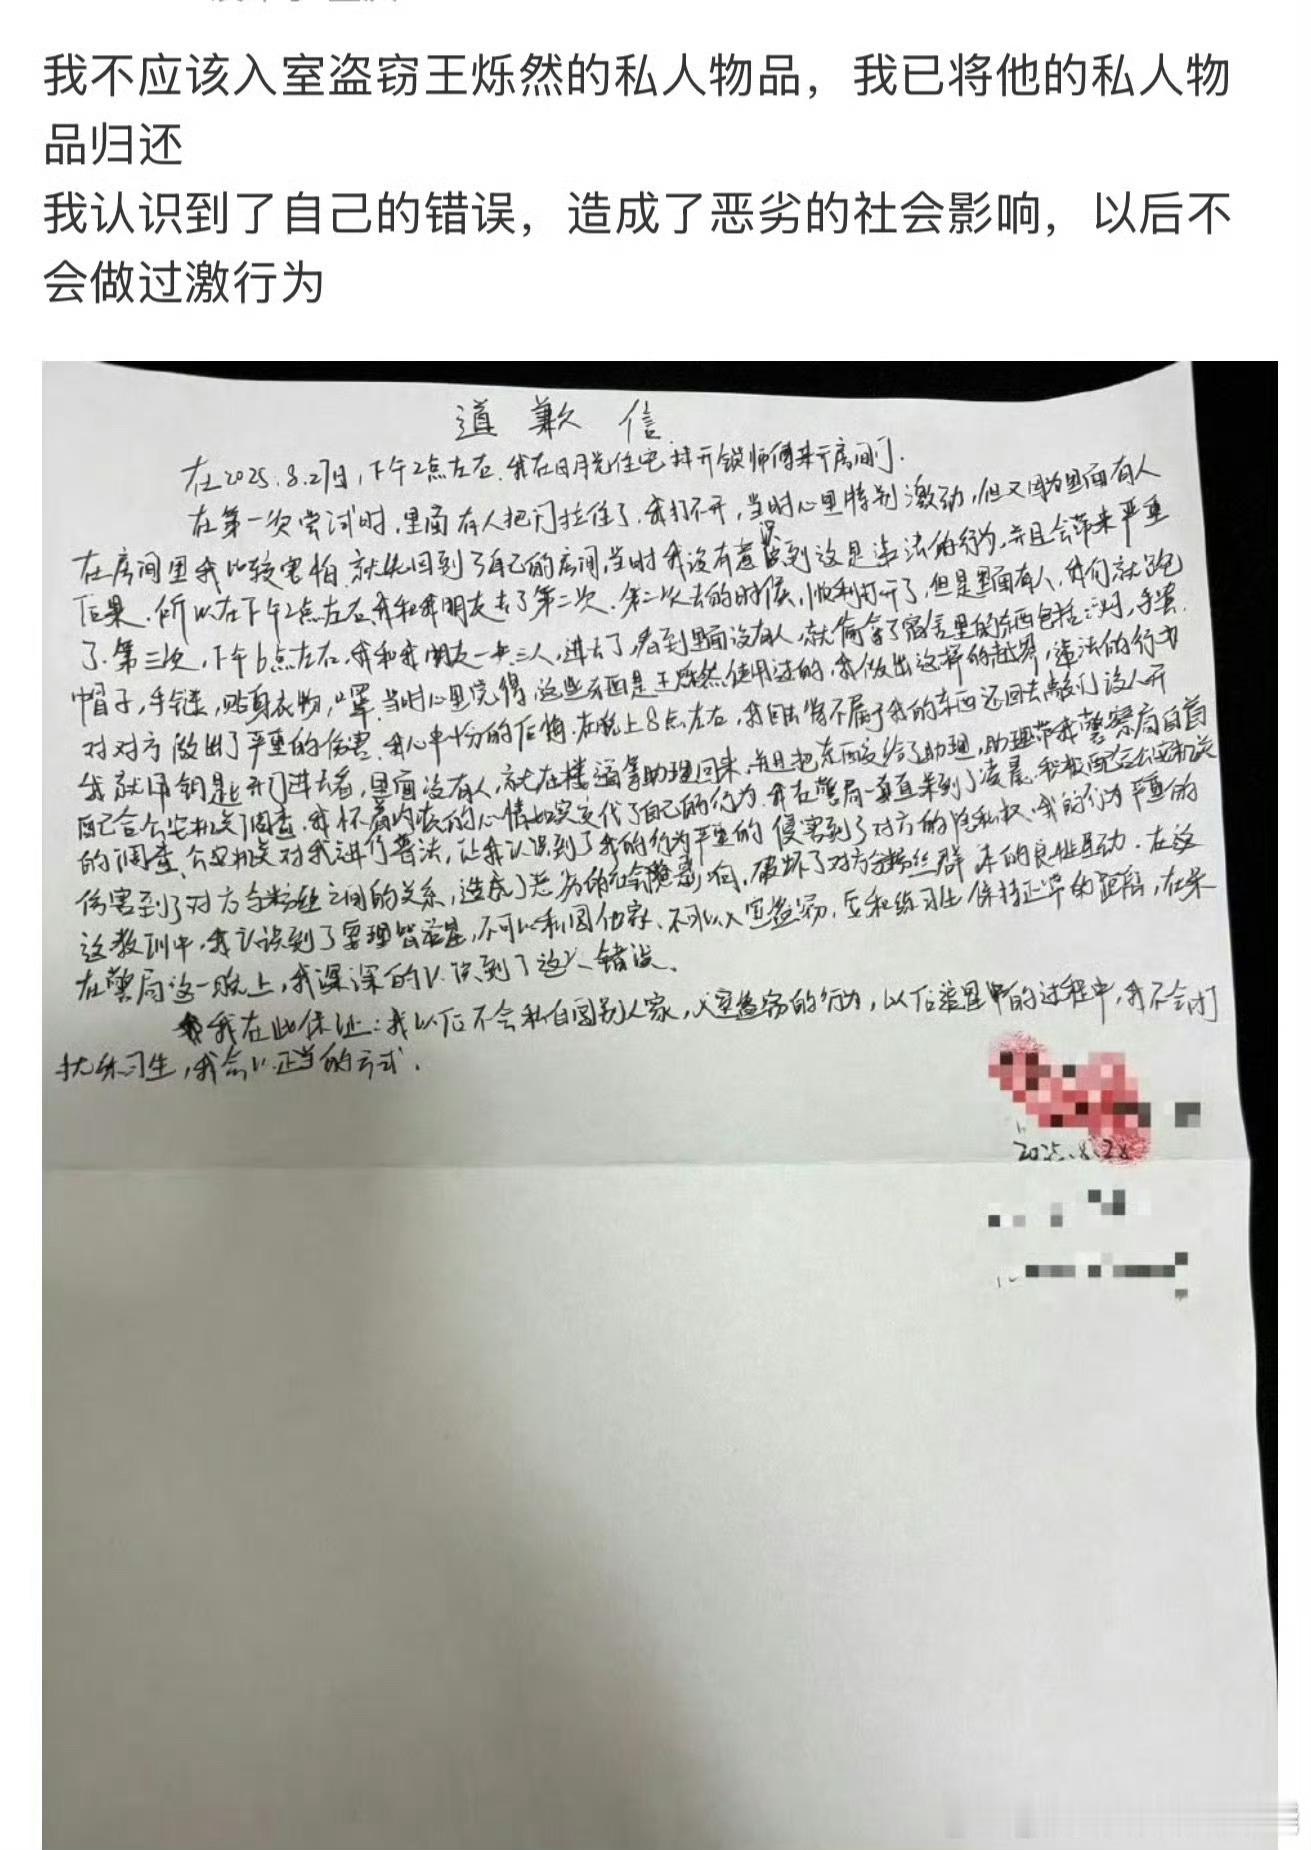 我不应该入室盗窃王烁然的私人物品，我已将他的私人物
品归还
我认识到了自己的错误，造成了恶劣的社会影响，以后不
会做过激行为
道歉信
在2025.8.27日，下午2点左右.我在日月光住宅找开锁师傅来开房间门.
在第一次尝试时，里面有人把门拉住了.我打不开，当时心里特别激动，但又因为里面有人
在房间里我比较害怕.就先回到了自己的房间，当时我没有意识到这是违法的行为，并且会带来严重
后果.所以在下午2点左右，我和我朋友去了第二次.第二次去的时候，顺利打开了，但是里面有人，我们就跑
了.第三次，下午6点左右，我和我朋友一共三人，进去了，看到里面没有人，就偷拿了宿舍里的东西包括：，手套.
帽子，手链，贴身衣物，口罩.当时心里觉得，这些东西是王烁然使用过的，我做出这样的越界，违法的行为
对对方做出了严重的伤害.我心中十分的后悔.在晚上8点左右，我回去将不属于我的东西还回去敲门没人开
我就用钥匙开门进去看，里面没有人，就在楼道等助理回来，并且把东西交给了助理，助理带我警察局自首
配合公安机关调查.我怀着内疚的心情如实交代了自己的行为.我在警局一直呆到了凌晨.积极配合公安机关
的调查，公安机关对我进行普法，让我认识到了我的行为严重的侵害到了对方的隐私权.我的行为严重的
伤害到了对方与粉丝之间的关系，造成了恶劣的社会影响，破坏了对方与粉丝群体的良性互动.在这
这教训中，我认识到了要理智追星，不可以私闯他家、不可以入室盗窃，应和练习生保持正常的距离，在呆
在警局这一晚上，我深深的认识到了这个错误.
我在此保证：我以后不会私自闯别人家，入室盗窃的行为，以后追星中的过程中，我不会打
扰练习生，我会以正当的方式.
2025.8.28